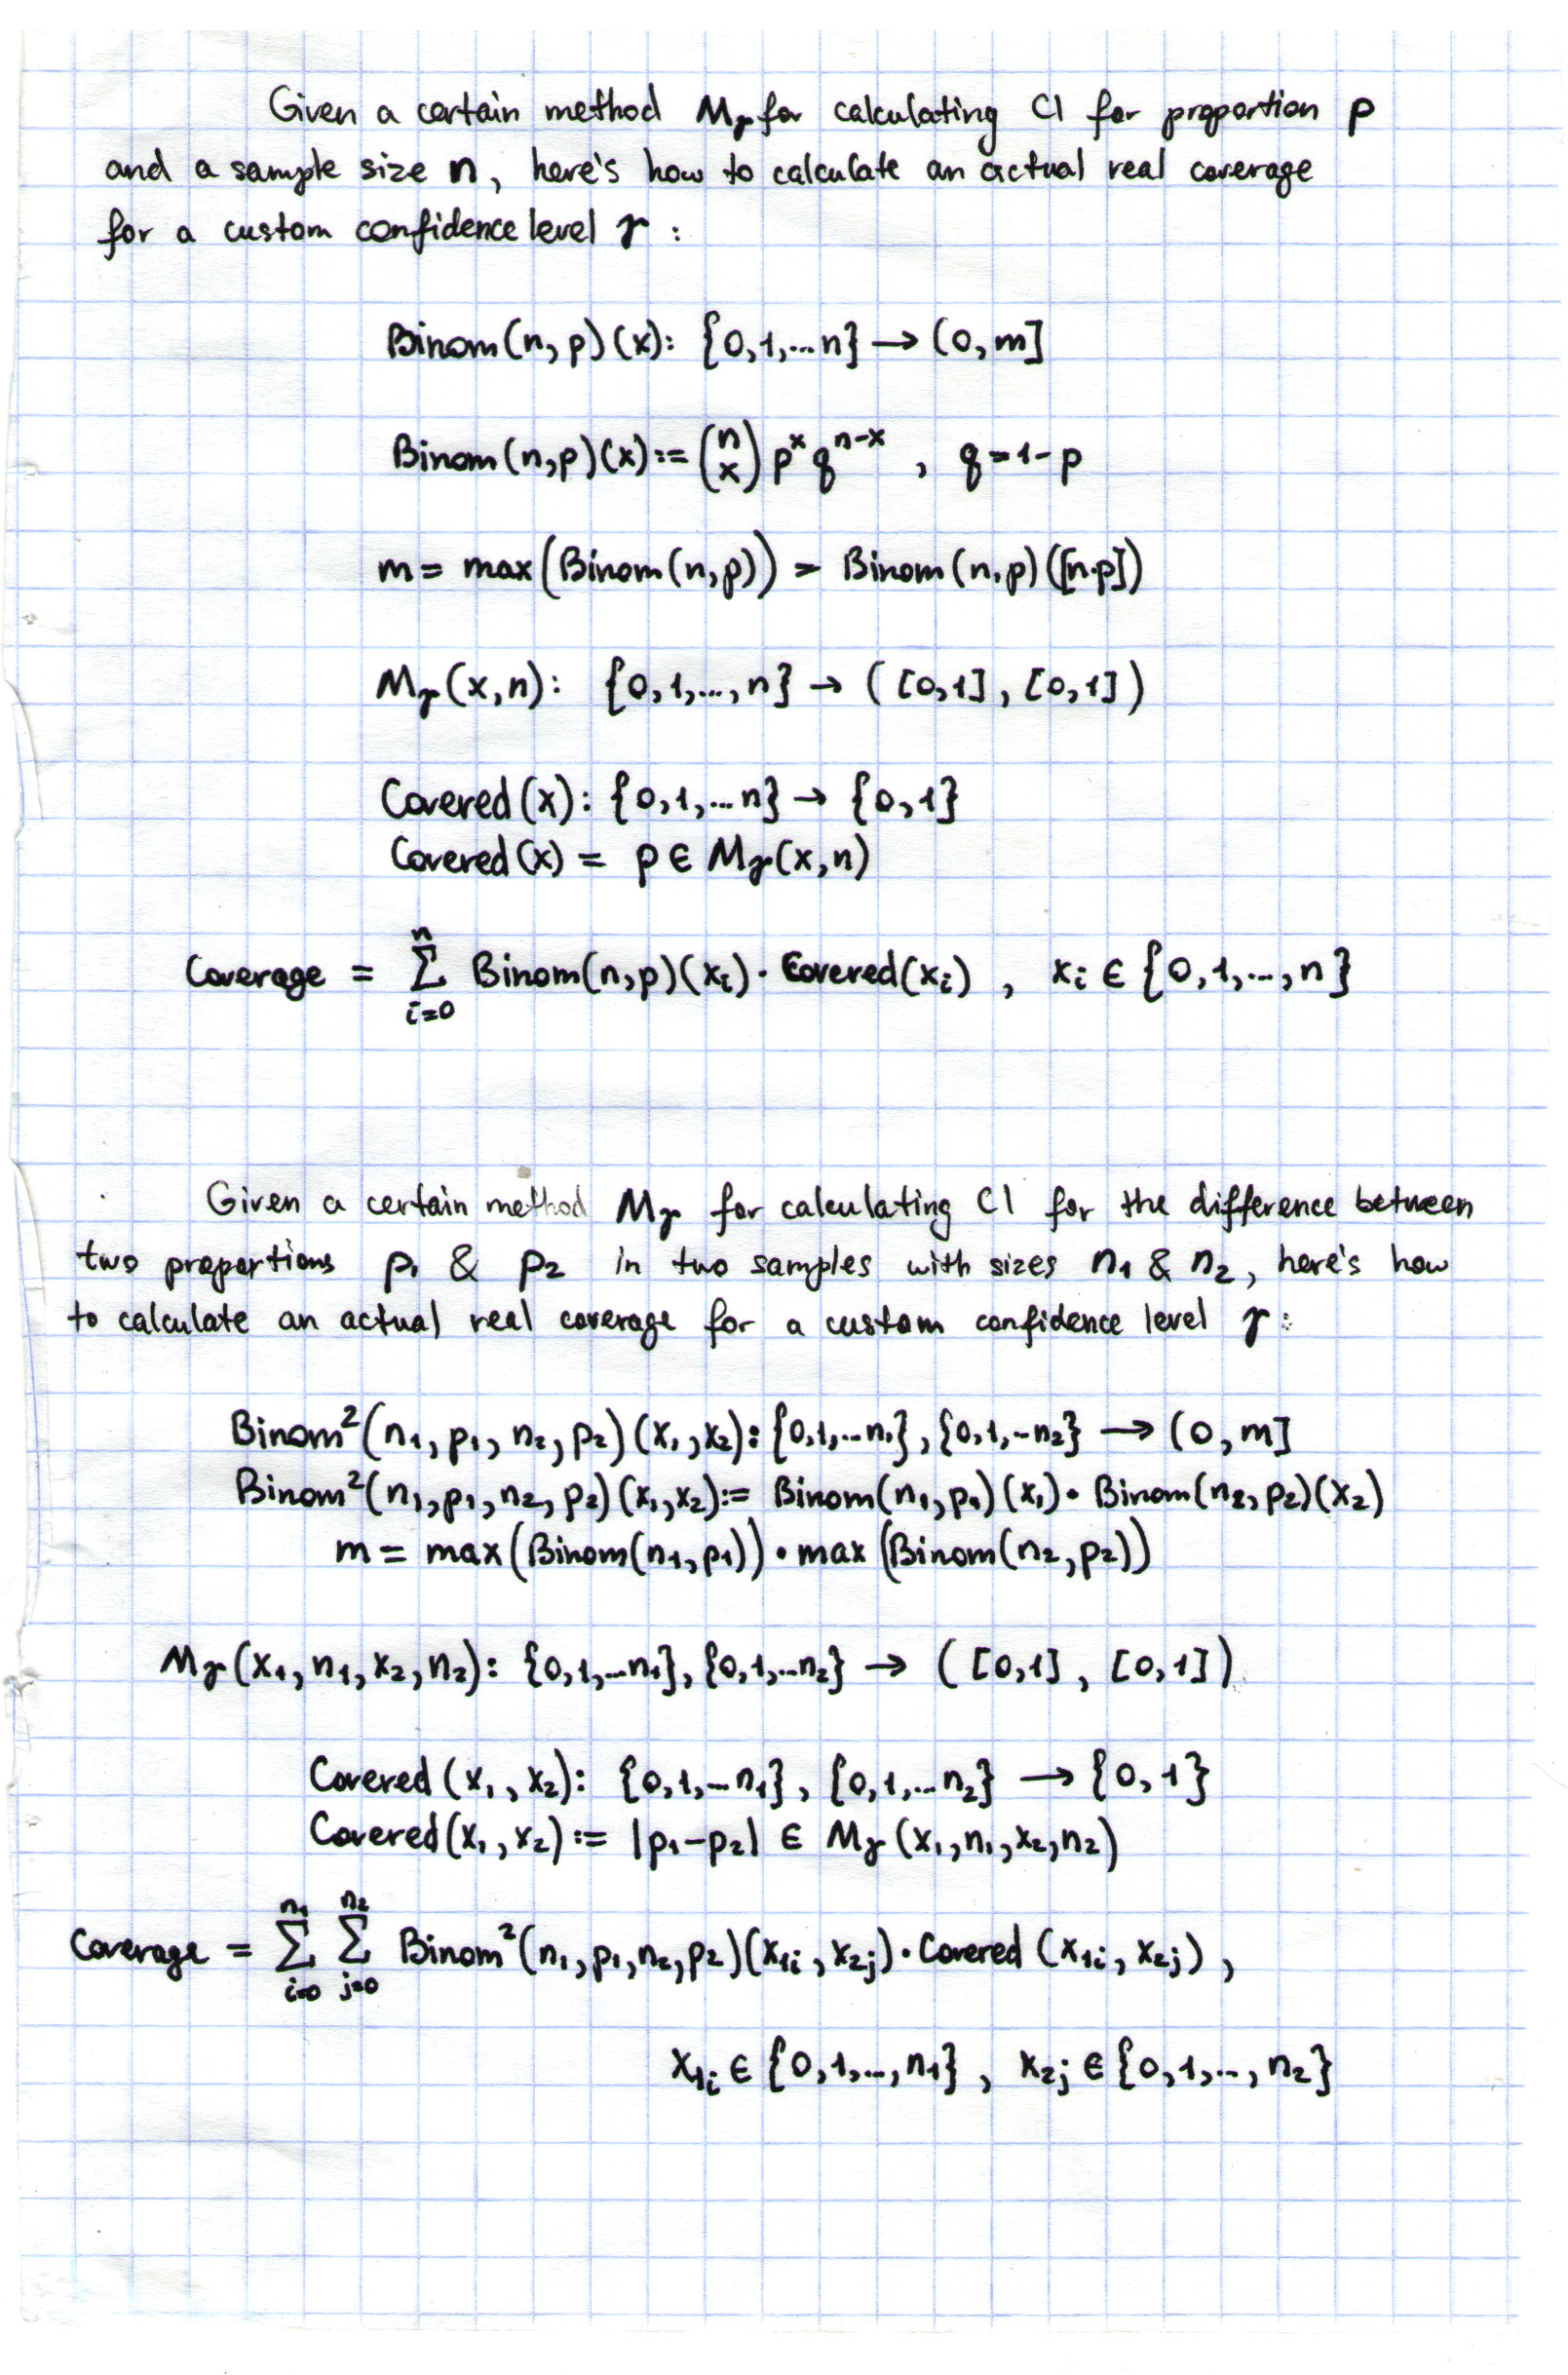 Given a certain method Mγ for calculating CI for proportion p
and a sample size n, here's how to calculate an actual real coverage
for a custom confidence level γ:
Binom(n, p)(x): {0,1,...n} → (0, m]
Binom(n,p)(x) := (n x) p^x q^(n-x) , q = 1-p
m = max(Binom(n,p)) = Binom(n,p)([n·p])
Mγ(x,n): {0,1,...,n} → ([0,1], [0,1])
Covered(x): {0,1,...n} → {0,1}
Covered(x) = p ∈ Mγ(x,n)
Coverage = Σ_{i=0}^{n} Binom(n,p)(xᵢ) · Covered(xᵢ) , xᵢ ∈ {0,1,...,n}
Given a certain method Mγ for calculating CI for the difference between
two proportions p₁ & p₂ in two samples with sizes n₁ & n₂, here's how
to calculate an actual real coverage for a custom confidence level γ:
Binom²(n₁, p₁, n₂, p₂)(x₁, x₂): {0,1,...n₁}, {0,1,...n₂} → (0, m]
Binom²(n₁,p₁,n₂,p₂)(x₁,x₂) := Binom(n₁,p₁)(x₁) · Binom(n₂,p₂)(x₂)
m = max(Binom(n₁,p₁)) · max(Binom(n₂,p₂))
Mγ(x₁, n₁, x₂, n₂): {0,1,...n₁}, {0,1,...n₂} → ([0,1], [0,1])
Covered(x₁, x₂): {0,1,...n₁}, {0,1,...n₂} → {0,1}
Covered(x₁, x₂) := |p₁-p₂| ∈ Mγ(x₁,n₁,x₂,n₂)
Coverage = Σ_{i=0}^{n₁} Σ_{j=0}^{n₂} Binom²(n₁,p₁,n₂,p₂)(x₁ᵢ, x₂ⱼ) · Covered(x₁ᵢ, x₂ⱼ) ,
x₁ᵢ ∈ {0,1,...,n₁} , x₂ⱼ ∈ {0,1,..., n₂}